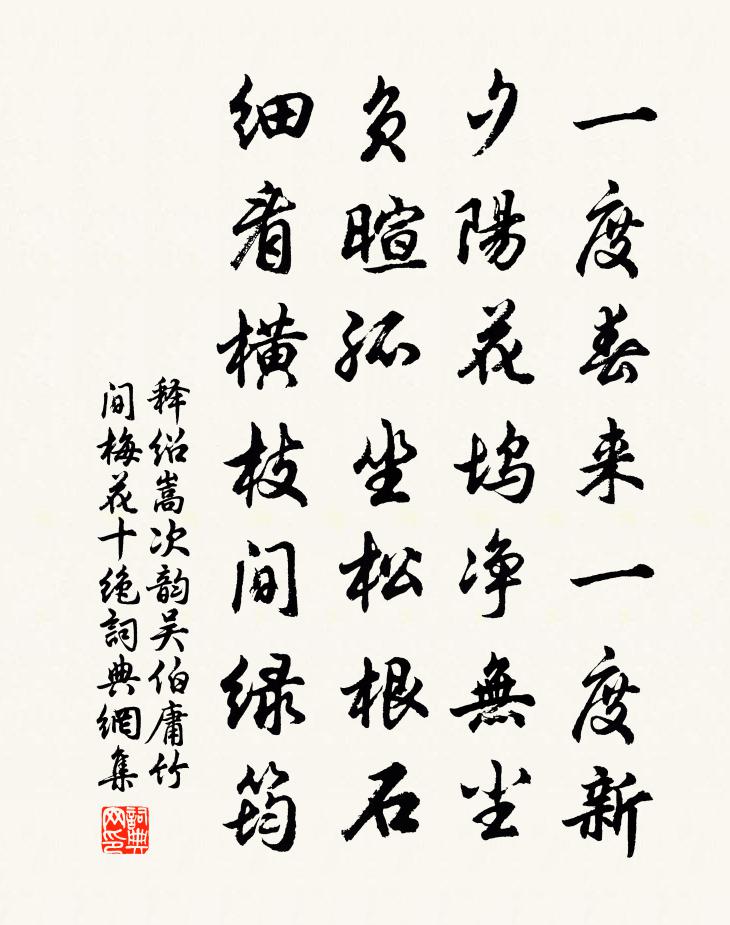 一度春来一度新
夕陽花塢净無尘
负暄孤坐松根石
细看横枝间绿筠
释绍嵩次韵吴伯庸竹
间梅花十绝詞典網集
詞典
网印